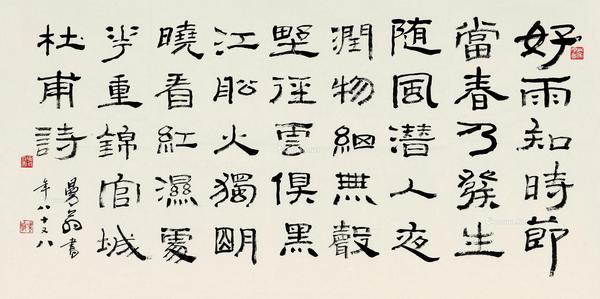 好雨知時節
當春乃發生
随風潛入夜
潤物細無聲
野徑雲俱黑
江船火獨明
曉看紅濕處
花重錦官城
杜甫詩
曼翁書
年八十又八